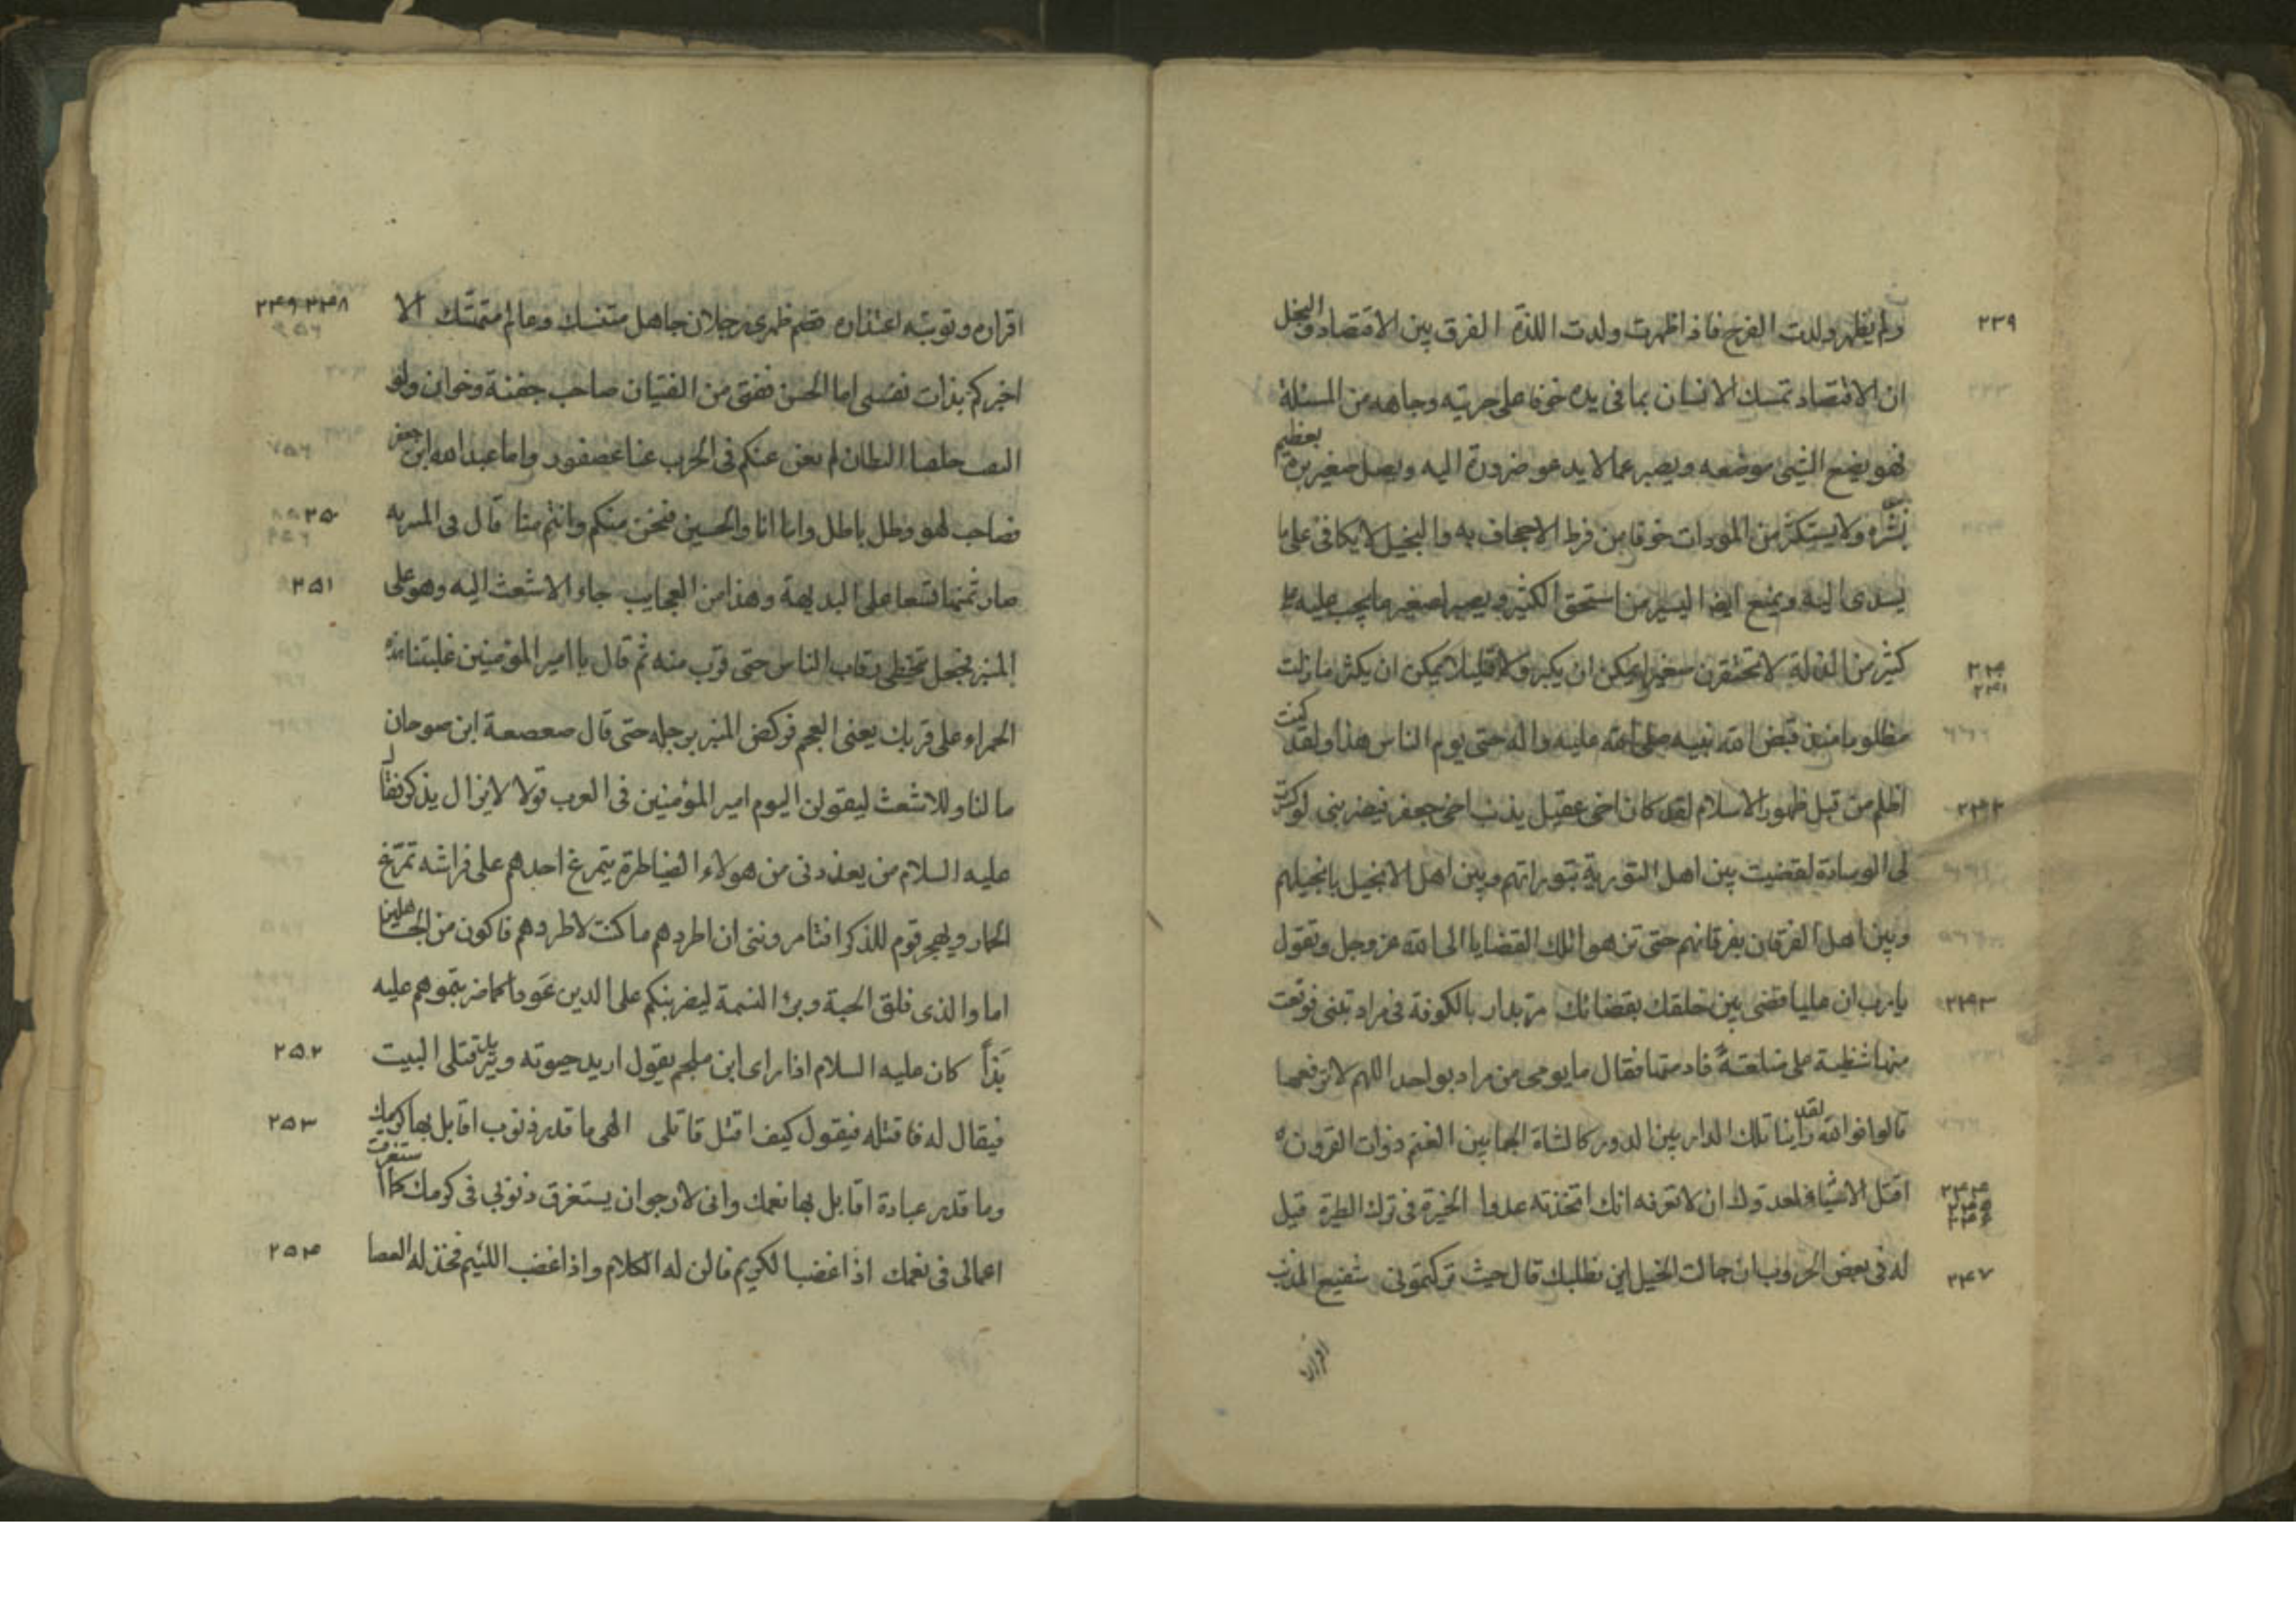 ۲۳۹ ولم يظهر ولدت الفرح فاذا ظهرت ولدت اللذة الفرق بين الاقتصاد والبخل
ان الاقتصاد تمسك الانسان بما فى يده خوفا على حريته وجاهه من المسئلة
فهو يضع الشئ موضعه ويصبر عما لا يدعو ضرورة اليه ويصل صغير بره بعظيم
بشره ولا يستكثر من المودات خوفا من فرط الاجحاف به والبخيل لا يكافئ على ما
يسدى اليه ويمنع ايضا اليسير من استحق الكثير ويصبر لصغير ما يجب عليه على
۲۴۰ ۲۴۱ كثير من الذلة لا تحتقرن صغيرا يمكن ان يكبر ولا قليلا يمكن ان يكثر ما زلت
مظلوما منذ قبض الله نبيه صلى الله عليه واله حتى يوم الناس هذا ولقد كنت
۲۴۲ اظلم من قبل ظهور الاسلام لقد كان اخى عقيل يذنب اخى جعفر فيضربنى لو كسرت
لى الوسادة لقضيت بين اهل التورية بتوراتهم وبين اهل الانجيل بانجيلهم
وبين اهل الفرقان بفرقانهم حتى تزهو تلك القضايا الى الله عز وجل وتقول
۲۴۳ يا رب ان عليا قضى بين خلقك بقضائك مر بدار بالكوفة فى مراد تبنى فوقعت
منها شظية على صلعته فادمتها فقال ما يومى من مراد بواحد اللهم لا ترفعها
قالوا فوالله لقد راينا تلك الدار بين الدور كالشاة الجما بين الغنم ذوات القرون
۲۴۴ ۲۴۵ ۲۴۶ اقتل الاشياء لعدوك ان لا تعرفه انك اتخذته عدوا الخيرة فى ترك الطيرة قيل
۲۴۷ له فى بعض الحروب ان جالت الخيل اين نطلبك قال حيث تركتمونى شفيع المذنب
اقراره
اقراره وتوبته اعتذاره قصم ظهرى رجلان جاهل متنسك وعالم متهتك الا ۲۴۸ ۲۴۹
اخبركم بذات نفسى اما الحسن ففتى من الفتيان صاحب جفنة وخوان ولو
التقت حلقتا البطان لم يغن عنكم فى الحرب غناء عصفور واما عبد الله ابن جعفر
فصاحب لهو وظل باطل واما انا والحسين فنحن منكم وانتم منا قال فى المنبرية ۲۵۰
صار ثمنها تسعا على البديهة وهذا من العجايب جاء الاشعث اليه وهو على ۲۵۱
المنبر فجعل تخطى رقاب الناس حتى قرب منه ثم قال يا امير المؤمنين غلبتنا هذه
الحمراء على قربك يعنى العجم فركض المنبر برجله حتى قال صعصعة ابن صوحان
ما لنا وللاشعث ليقولن اليوم امير المؤمنين فى العرب قولا لا يزال يذكر فقال
عليه السلام من يعذرنى من هولاء الضياطرة يتمرغ احدهم على فراشه تمرّغ
الحمار ويهجر قوم للذكر افتامروننى ان اطردهم ما كنت لاطردهم فاكون من الجاهلين
اما والذى فلق الحبة وبرئ النسمة ليضربنكم على الدين عَودا كما ضربتموهم عليه
بَدْأً كان عليه السلام اذا راى ابن ملجم يقول اريد حيوته ويريد قتلى البيت ۲۵۲
فيقال له فاقتله فيقول كيف اقتل قاتلى الهى ما قدر ذنوب اقابل بها كرمك ۲۵۳
وما قدر عبادة اقابل بها نعمك وانى لارجو ان يستغرق ذنوبى فى كرمك كما استغرقت
اعمالى فى نعمك اذا غضب الكريم فالن له الكلام واذا غضب اللئيم فخذ له العصا ۲۵۴